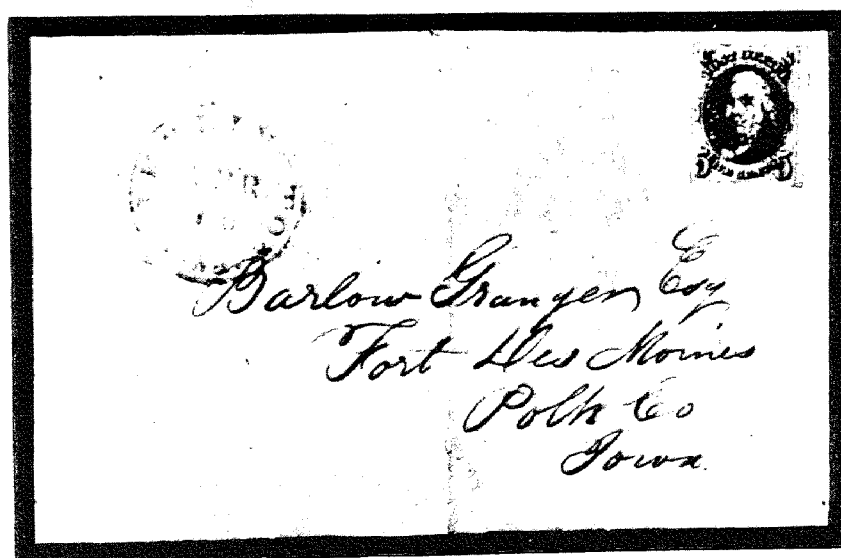 APR
Barlow Granger, Esq
Fort Des Moines
Polk Co
Iowa.